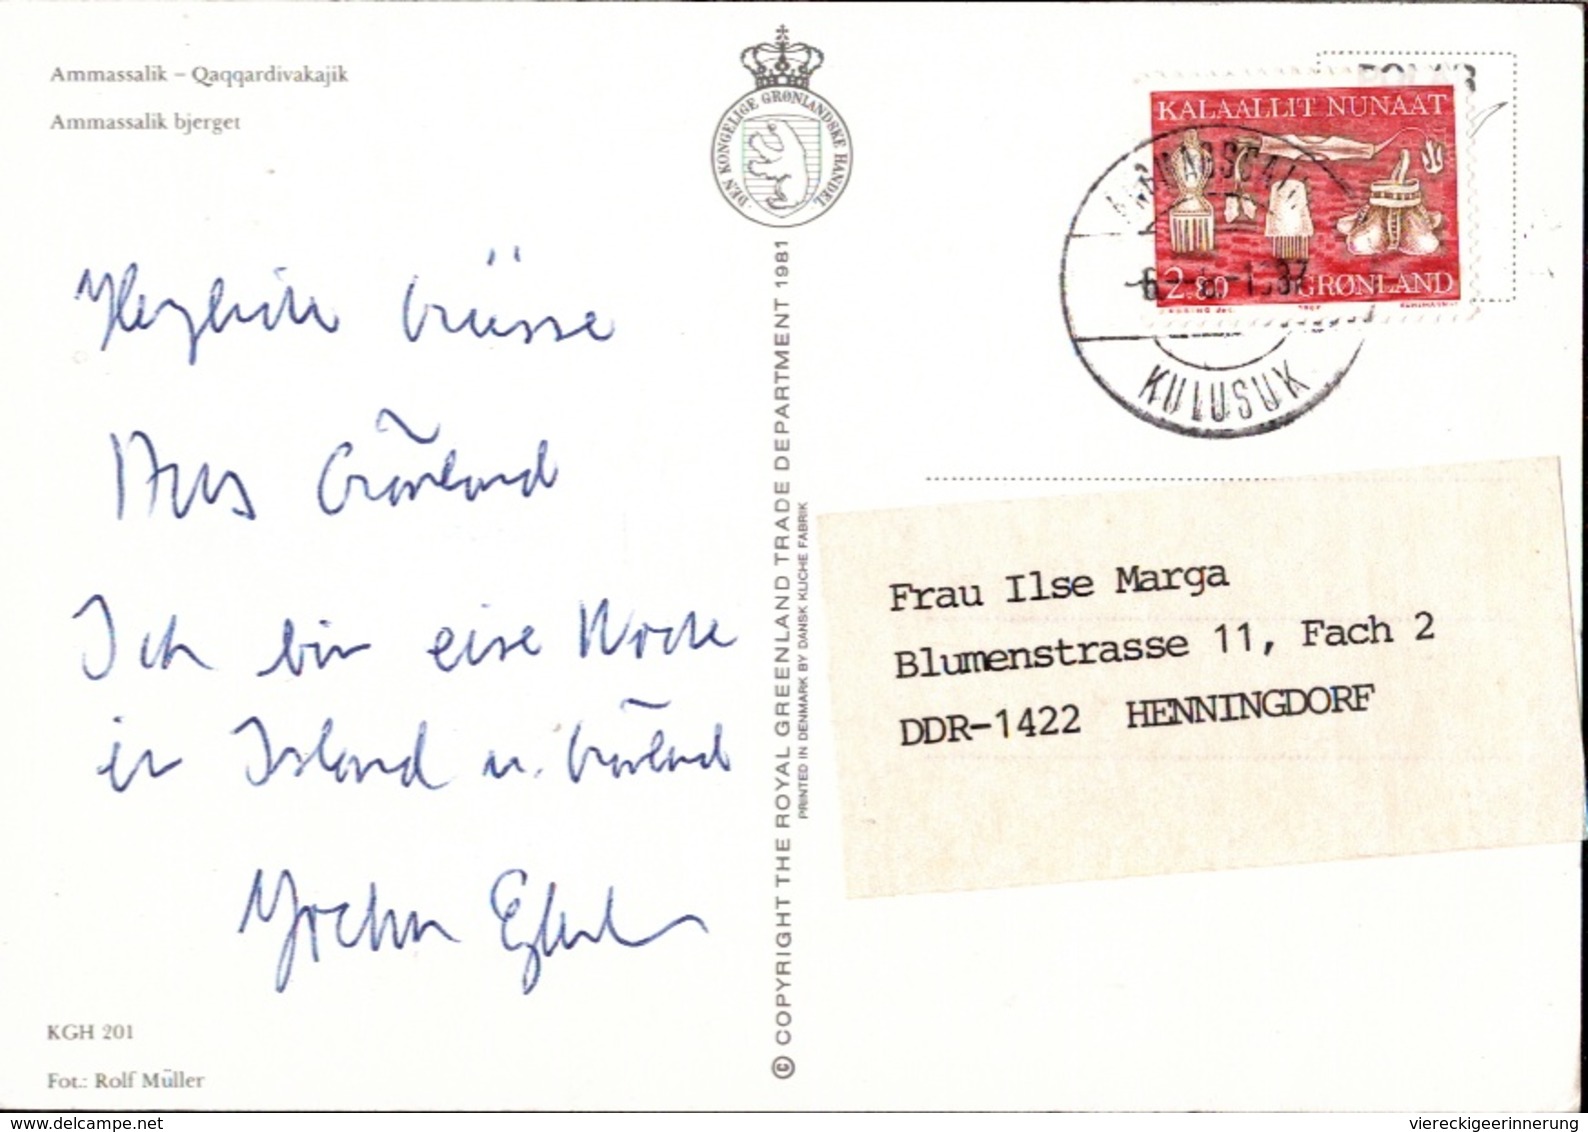 Ammassalik – Qaqqardivakajik
Ammassalik bjerget
DEN KONGELIGE GRØNLANDSKE HANDEL
POLAR
KALAALLIT NUNAAT
2.80 GRØNLAND
KULUSUK
Herzliche Grüsse
Aus Grönland
Ich bin eine Woche
in Island u. Grönland
Jochen
© COPYRIGHT THE ROYAL GREENLAND TRADE DEPARTMENT 1981
PRINTED IN DENMARK BY DANSK KLICHE FABRIK
Frau Ilse Marga
Blumenstrasse 11, Fach 2
DDR-1422 HENNINGDORF
KGH 201
Fot.: Rolf Müller
delcampe.net
viereckigeerinnerung